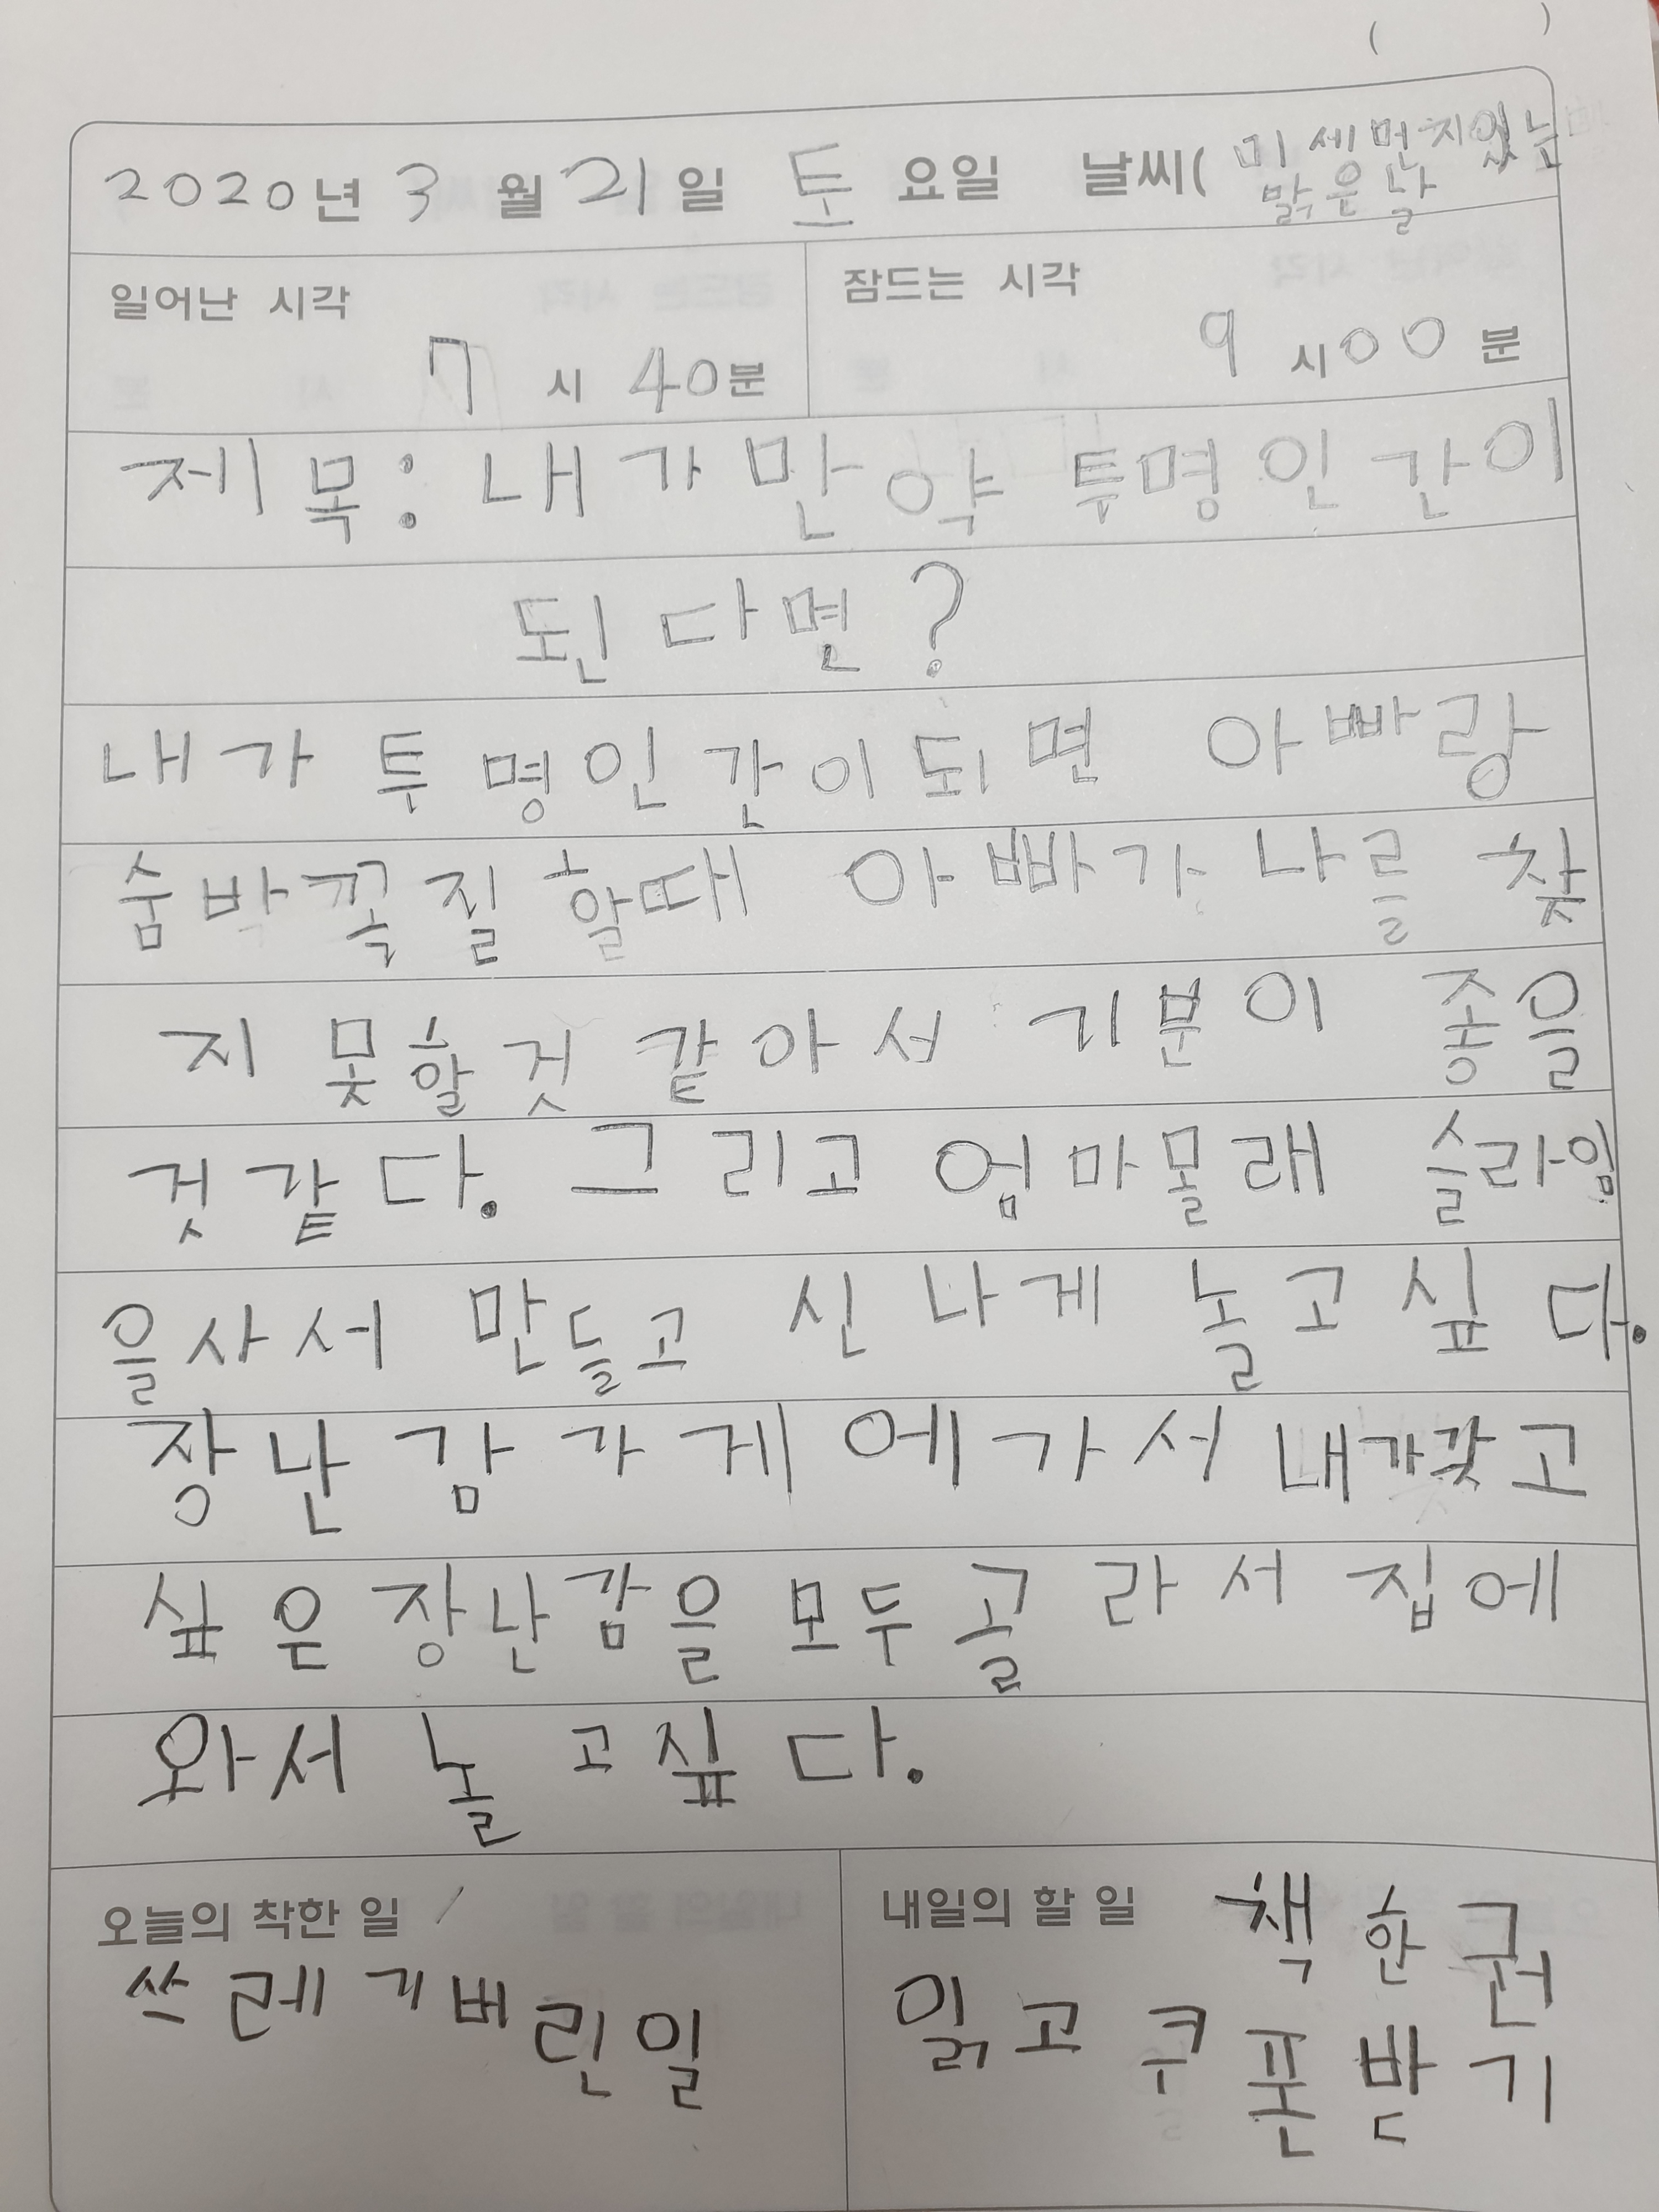 ( )
2020년 3월 21일 토요일 날씨( 미세먼지있는
맑은날
일어난 시각 잠드는 시각
7시 40분 9시 00분
제목: 내가 만약 투명인간이
된다면?
내가 투명인간이되면 아빠랑
숨바꼭질 할때 아빠가 나를 찾
지 못할것 같아서 기분이 좋을
것같다. 그리고 엄마몰래 슬라임
을사서 만들고 신나게 놀고싶다.
장난감가게에가서 내가갖고
싶은 장난감을 모두 골라서 집에
와서 놀고싶다.
오늘의 착한 일
쓰레기버린일
내일의 할 일 책 한 권
읽고 쿠폰 받기